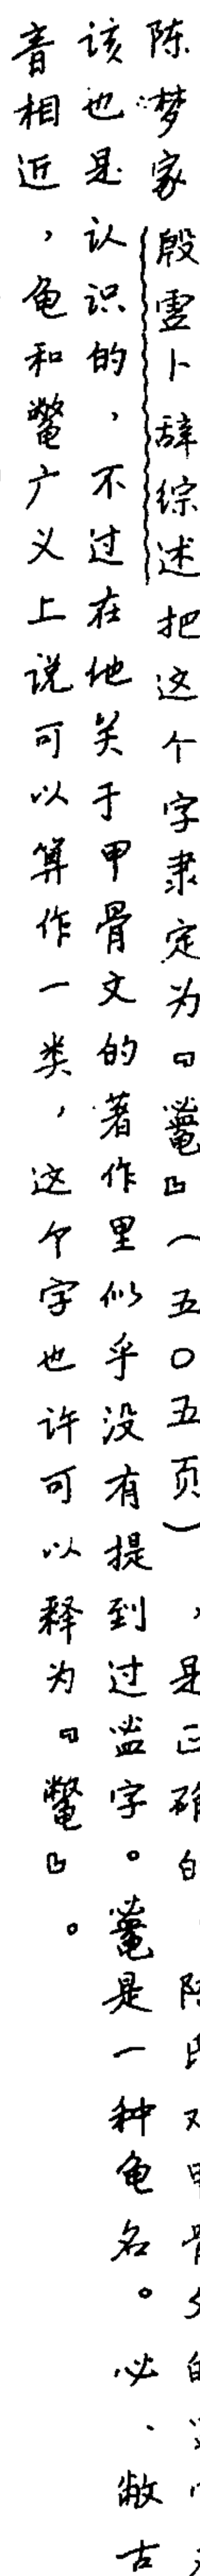 陈梦家殷虚卜辞综述把这个字隶定为「」(五〇五页),是正确的 陈氏对甲骨文的
该也是认识的,不过在他关于甲骨文的著作里似乎没有提到过𥁑字。是一种龟名。必、敝古
音相近,龟和鼈广义上说可以算作一类,这个字也许可以释为「鼈」。